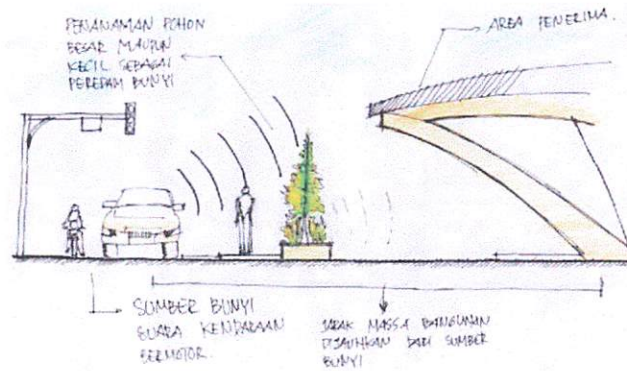 PENANAMAN POHON
BESAR MAUPUN
KECIL SEBAGAI
PEREDAM BUNYI
AREA PENERIMA.
SUMBER BUNYI
SUARA KENDARAAN
BERMOTOR.
JARAK MASSA BANGUNAN
DIJAUHKAN DARI SUMBER
BUNYI